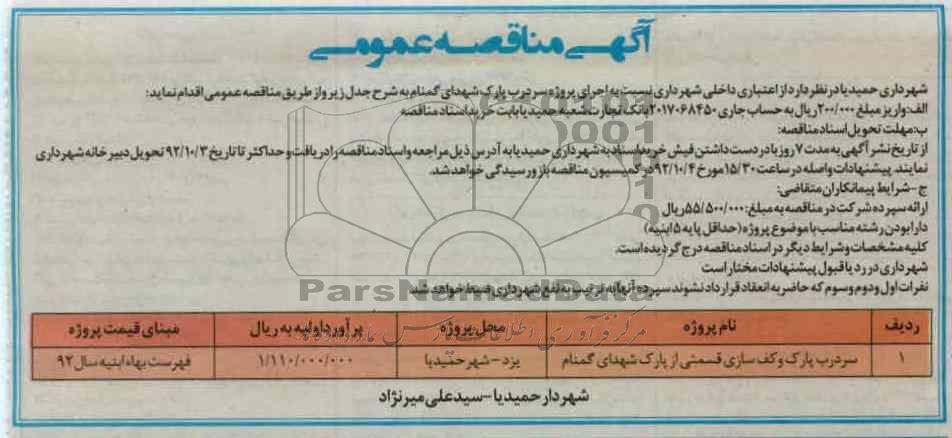 آگهی مناقصه عمومی
شهرداری حمیدیا در نظر دارد از اعتباری داخلی شهرداری نسبت به اجرای پروژه سردرب پارک شهدای گمنام به شرح جدل زیر و از طریق مناقصه عمومی اقدام نماید:
الف: واریز مبلغ ۲۰۰/۰۰۰ ریال به حساب جاری ۲۰۱۷۰۶۸۴۵۰ بانک تجارت شعبه حمیدیا بابت خرید اسناد مناقصه
ب: مهلت تحویل اسناد مناقصه:
از تاریخ نشر آگهی به مدت ۷ روز با در دست داشتن فیش خرید اسناد به شهرداری حمیدیا به آدرس ذیل مراجعه و اسناد مناقصه را دریافت و حداکثر تا تاریخ ۹۲/۱۰/۳ تحویل دبیرخانه شهرداری
نمایند. پیشنهادات واصله در ساعت ۱۵/۳۰ مورخ ۹۲/۱۰/۴ در کمیسیون مناقصه باز و رسیدگی خواهد شد.
ج- شرایط پیمانکاران متقاضی:
ارائه سپرده شرکت در مناقصه به مبلغ: ۵۵/۵۰۰/۰۰۰ ریال
دارا بودن رشته مناسب با موضوع پروژه (حداقل پایه ۵ ابنیه)
کلیه مشخصات و شرایط دیگر در اسناد مناقصه درج گردیده است.
شهرداری در رد یا قبول پیشنهادات مختار است
نفرات اول و دوم و سوم که حاضر به انعقاد قرارداد نشوند سپرده آنها به ترتیب به نفع شهرداری ضبط خواهد شد.
ParsNamadData
ردیف نام پروژه محل پروژه برآورد اولیه به ریال مبنای قیمت پروژه
۱ سردرب پارک و کف سازی قسمتی از پارک شهدای گمنام یزد - شهر حمیدیا ۱/۱۱۰/۰۰۰/۰۰۰ فهرست بهاء ابنیه سال ۹۲
شهردار حمیدیا - سید علی میرنژاد